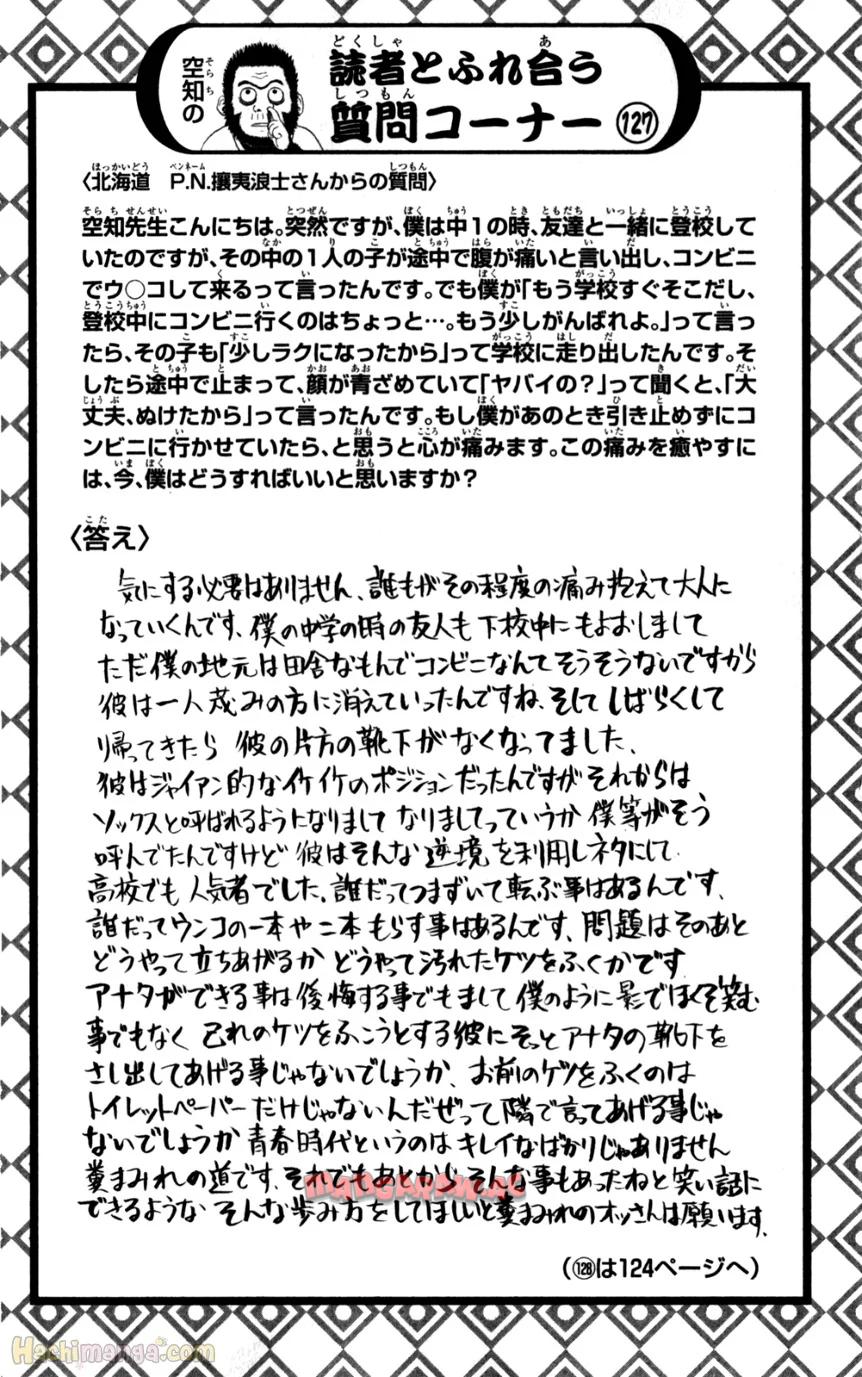 空知の
読者とふれ合う
質問コーナー 127
〈北海道 P.N.攘夷浪士さんからの質問〉
空知先生こんにちは。突然ですが、僕は中1の時、友達と一緒に登校して
いたのですが、その中の1人の子が途中で腹が痛いと言い出し、コンビニ
でウ〇コして来るって言ったんです。でも僕が「もう学校すぐそこだし、
登校中にコンビニ行くのはちょっと…。もう少しがんばれよ。」って言っ
たら、その子も「少しラクになったから」って学校に走り出したんです。そ
したら途中で止まって、顔が青ざめていて「ヤバイの？」って聞くと、「大
丈夫、ぬけたから」って言ったんです。もし僕があのとき引き止めずにコ
ンビニに行かせていたら、と思うと心が痛みます。この痛みを癒やすに
は、今、僕はどうすればいいと思いますか？
〈答え〉
気にする必要はありません、誰もがその程度の痛み抱えて大人に
なっていくんです、僕の中学の時の友人も下校中にもよおしまして
ただ僕の地元は田舎なもんでコンビニなんてそうそうないですから
彼は一人茂みの方に消えていったんですね、そして しばらくして
帰ってきたら 彼の片方の靴下がなくなってました、
彼はジャイアン的なイケイケのポジションだったんですが それからは
ソックスと呼ばれるようになりまして なりましてっていうか 僕等がそう
呼んでたんですけど 彼はそんな逆境を利用しネタにして
高校でも人気者でした、誰だってつまずいて転ぶ事はあるんです、
誰だってウンコの一本や二本もらす事はあるんです、問題はそのあと
どうやって立ちあがるか どうやって汚れたケツをふくかです
アナタができる事は後悔する事でもまして僕のように影でほくそ笑む
事でもなく 己れのケツをふこうとする彼にそっとアナタの靴下を
さし出してあげる事じゃないでしょうか、お前のケツをふくのは
トイレットペーパーだけじゃないんだぜって隣で言ってあげる事じゃ
ないでしょうか 青春時代というのは キレイなばかりじゃありません
糞まみれの道です、それでもあとから そんな事もあったねと 笑い話に
できるような そんな歩み方をしてほしいと糞まみれのオッさんは願います、
(128は124ページへ)
Hachimanga.com